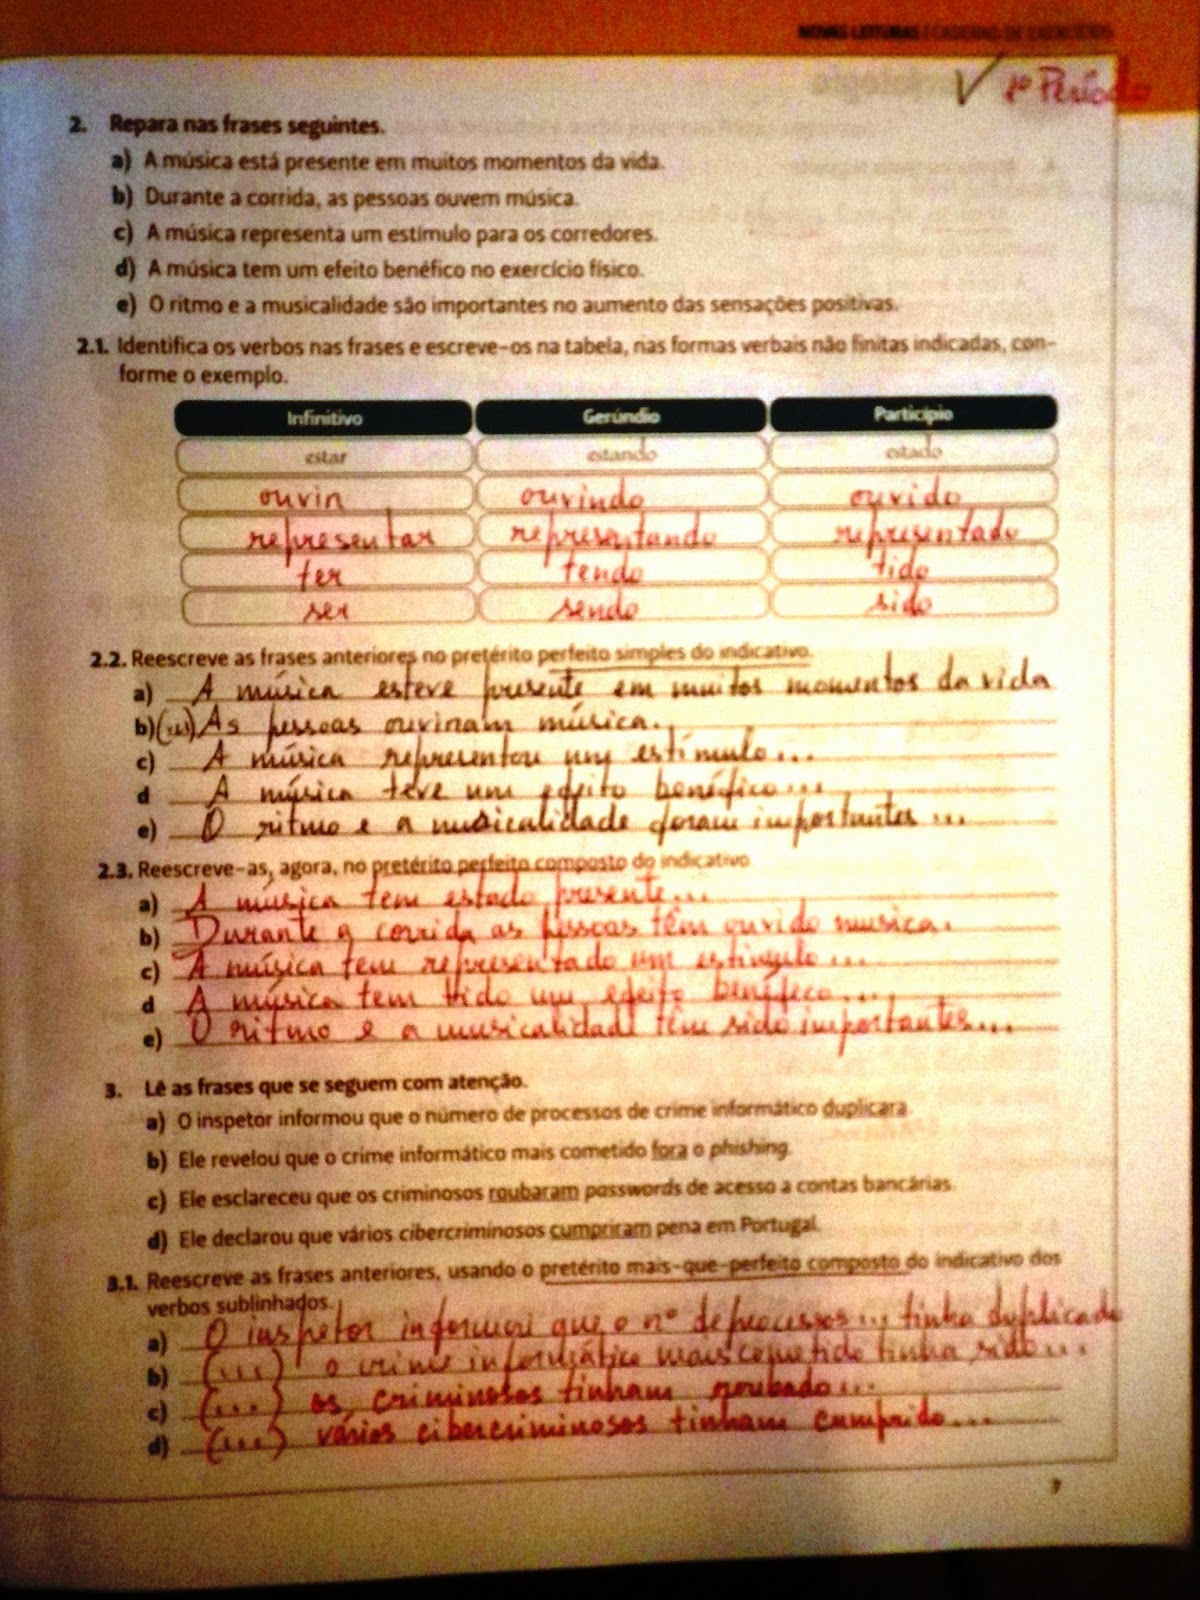 NOVAS LEITURAS | CADERNO DE EXERCÍCIOS
✓ 1º Período
2. Repara nas frases seguintes.
a) A música está presente em muitos momentos da vida.
b) Durante a corrida, as pessoas ouvem música.
c) A música representa um estímulo para os corredores.
d) A música tem um efeito benéfico no exercício físico.
e) O ritmo e a musicalidade são importantes no aumento das sensações positivas.
2.1. Identifica os verbos nas frases e escreve-os na tabela, nas formas verbais não finitas indicadas, con-
forme o exemplo.
Infinitivo Gerúndio Particípio
estar estando estado
ouvir ouvindo ouvido
representar representando representado
ter tendo tido
ser sendo sido
2.2. Reescreve as frases anteriores no pretérito perfeito simples do indicativo.
a) A música esteve presente em muitos momentos da vida
b) (...) As pessoas ouviram música.
c) A música representou um estímulo...
d A música teve um efeito benéfico...
e) O ritmo e a musicalidade foram importantes...
2.3. Reescreve-as, agora, no pretérito perfeito composto do indicativo
a) A música tem estado presente...
b) Durante a corrida as pessoas têm ouvido musica.
c) A música tem representado um estímulo...
d A música tem tido um efeito benéfico...
e) O ritmo e a musicalidade têm sido importantes...
3. Lê as frases que se seguem com atenção.
a) O inspetor informou que o número de processos de crime informático duplicara.
b) Ele revelou que o crime informático mais cometido fora o phishing.
c) Ele esclareceu que os criminosos roubaram passwords de acesso a contas bancárias.
d) Ele declarou que vários cibercriminosos cumpriram pena em Portugal.
3.1. Reescreve as frases anteriores, usando o pretérito mais-que-perfeito composto do indicativo dos
verbos sublinhados.
a) O inspetor informou que o nº de processos... tinha duplicado
b) (...) o crime informático mais cometido tinha sido...
c) (...) os criminosos tinham roubado...
d) (...) vários cibercriminosos tinham cumprido...
7